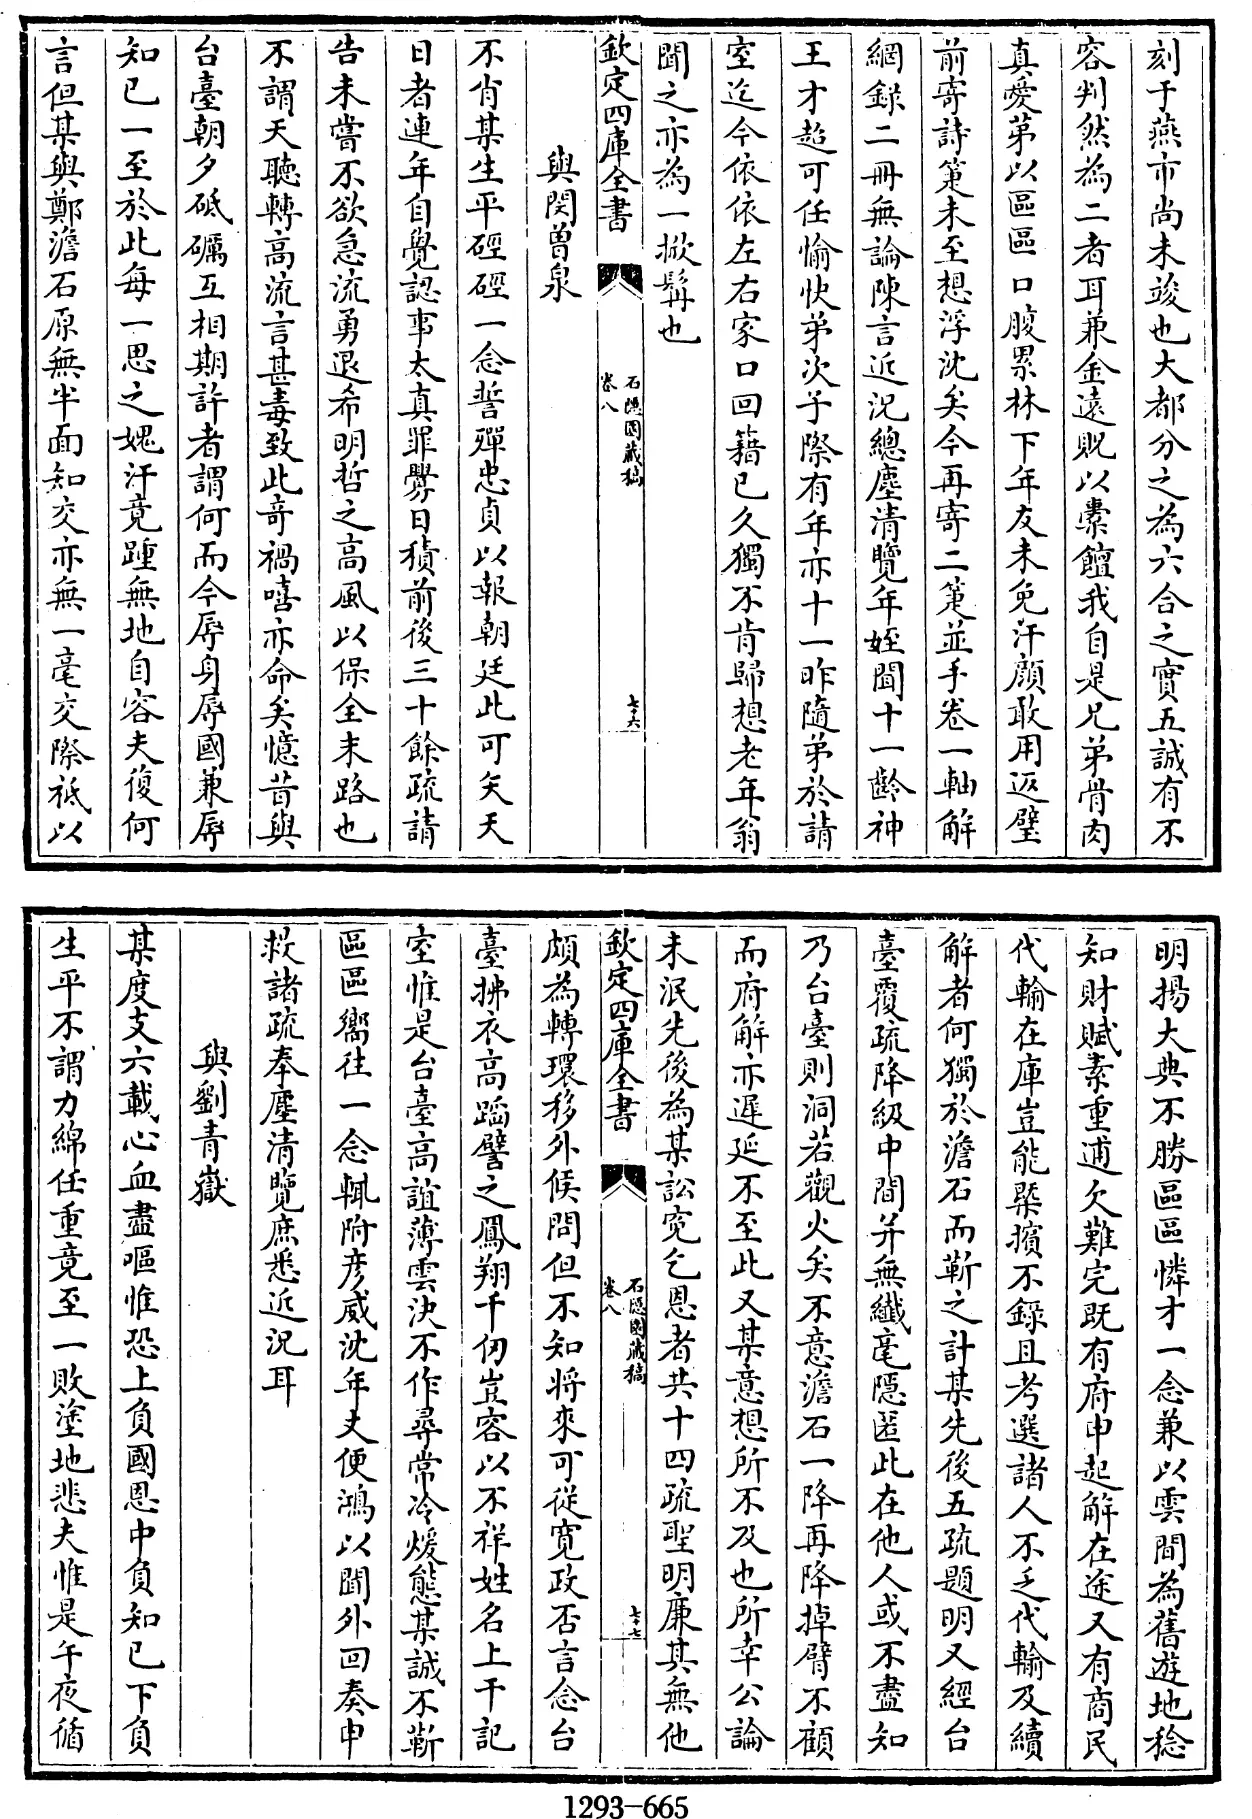 刻于燕市尚未竣也大都分之為六合之實五誠有不
容判然為二者耳兼金遠貺以索饘我自是兄弟骨肉
真愛第以區區口腹累林下年友未免汗顏敢用返璧
前寄詩箑未至想浮沈矣今再寄二箑並手卷一軸解
網錄二冊無論陳言近況總塵清覽年姪聞十一齡神
王才超可任愉快弟次子際有年亦十一昨隨弟於請
室迄今依依左右家口回籍已久獨不肯歸想老年翁
聞之亦為一掀髯也
欽定四庫全書
石隱園藏稿
卷八
七十六
與閔曾泉
不肖某生平硜硜一念誓殫忠貞以報朝廷此可矢天
日者連年自覺認事太真罪釁日積前後三十餘疏請
告未嘗不欲急流勇退希明哲之高風以保全末路也
不謂天聽轉高流言甚毒致此奇禍嘻亦命矣憶昔與
台臺朝夕砥礪互相期許者謂何而今辱身辱國兼辱
知已一至於此每一思之媿汗竟踵無地自容夫復何
言但某與鄭澹石原無半面知交亦無一毫交際祇以
明揚大典不勝區區憐才一念兼以雲間為舊遊地稔
知財賦素重逋欠難完既有府申起解在途又有商民
代輸在庫豈能槩擯不錄且考選諸人不乏代輸及續
解者何獨於澹石而靳之計某先後五疏題明又經台
臺覆疏降級中間并無纖毫隱匿此在他人或不盡知
乃台臺則洞若觀火矣不意澹石一降再降掉臂不顧
而府解亦遲延不至此又某意想所不及也所幸公論
未泯先後為某訟寃乞恩者共十四疏聖明廉其無他
欽定四庫全書
石隱園藏稿
卷八
七十七
頗為轉環移外候問但不知將來可從寬政否言念台
臺拂衣高蹈譬之鳳翔千仞豈容以不祥姓名上干記
室惟是台臺高誼薄雲決不作尋常冷煖態某誠不靳
區區嚮往一念輒附彦威沈年丈便鴻以聞外回奏申
救諸疏奉塵清覽庶悉近況耳
與劉青嶽
某度支六載心血盡嘔惟恐上負國恩中負知已下負
生平不謂力綿任重竟至一敗塗地悲夫惟是午夜循
1293-665